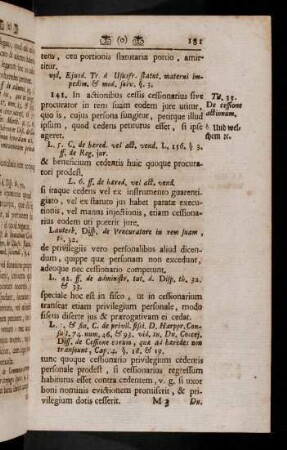 (o) 181
tenu, ceu portionis statutariæ portio, amit-
titur.
vid. Ejusd. Tr. d Usufr. statut. materni im-
pedim. & mod. solv. §. 3.
141. In actionibus cessis cessionarius sive
procurator in rem suam eodem jure utitur,
quo is, cujus persona fungitur, petitque illud
ipsum, quod cedens petiturus esset, si ipse
ageret.
L. 5. C. de hæred. vel act. vend. L. 156. §. 3.
ff. de Reg. jur.
& beneficium cedentis huic quoque procura-
tori prodest,
L. 6. ff. de hæred. vel act. vend.
si itaque cedens vel ex instrumento guarenti-
giato, vel ex statuto jus habet paratæ execu-
tionis, vel manus injectionis, etiam cessiona-
rius eodem uti poterit jure,
Lauterb. Diss. de Procuratore in rem suam,
th. 32.
de privilegiis vero personalibus aliud dicen-
dum, quippe quæ personam non excedunt,
adeoque nec cessionario competunt,
L. 42. ff. de administr. tut. d. Diss. th. 32.
& 33.
speciale hoc est in fisco, ut in cessionarium
transeat etiam privilegium personale, modo
fiscus diserte jus & prærogativam ei cedat.
L. & fin. C. de privil. fisci. D. Harppr. Con-
sil. 74. num. 46. & 93. vid. in. Dn. Coccej.
Diss. de Cessione eorum, quæ ad hæredes non
transeunt, Cap. 4. §. 18. & 19.
tunc quoque cessionario privilegium cedentis
personale prodest, si cessionarius regressum
habiturus esset contra cedentem, v. g. si uxor
boni nominis evictionem promiserit, & pri-
vilegium dotis cesserit.
M 3 Dn.
Tit. 35.
De cessione
actionum.
§. Und wel-
chem ꝛc.